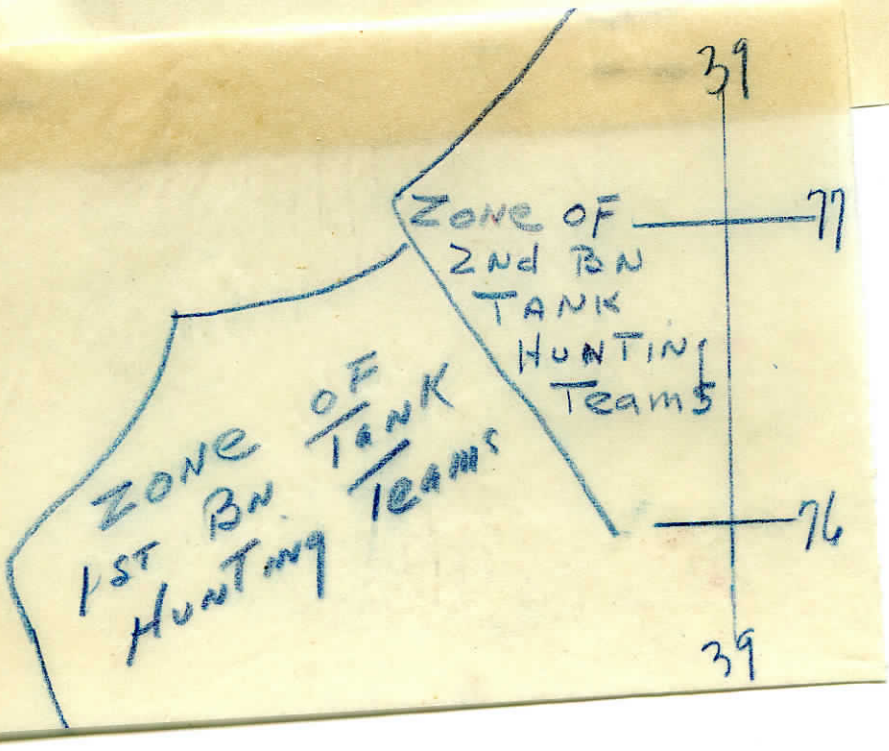 39
ZONE OF
77
2Nd BN
TANK
HUNTING
Teams
ZONE OF
1ST BN TANK
HUNTING Teams
76
39